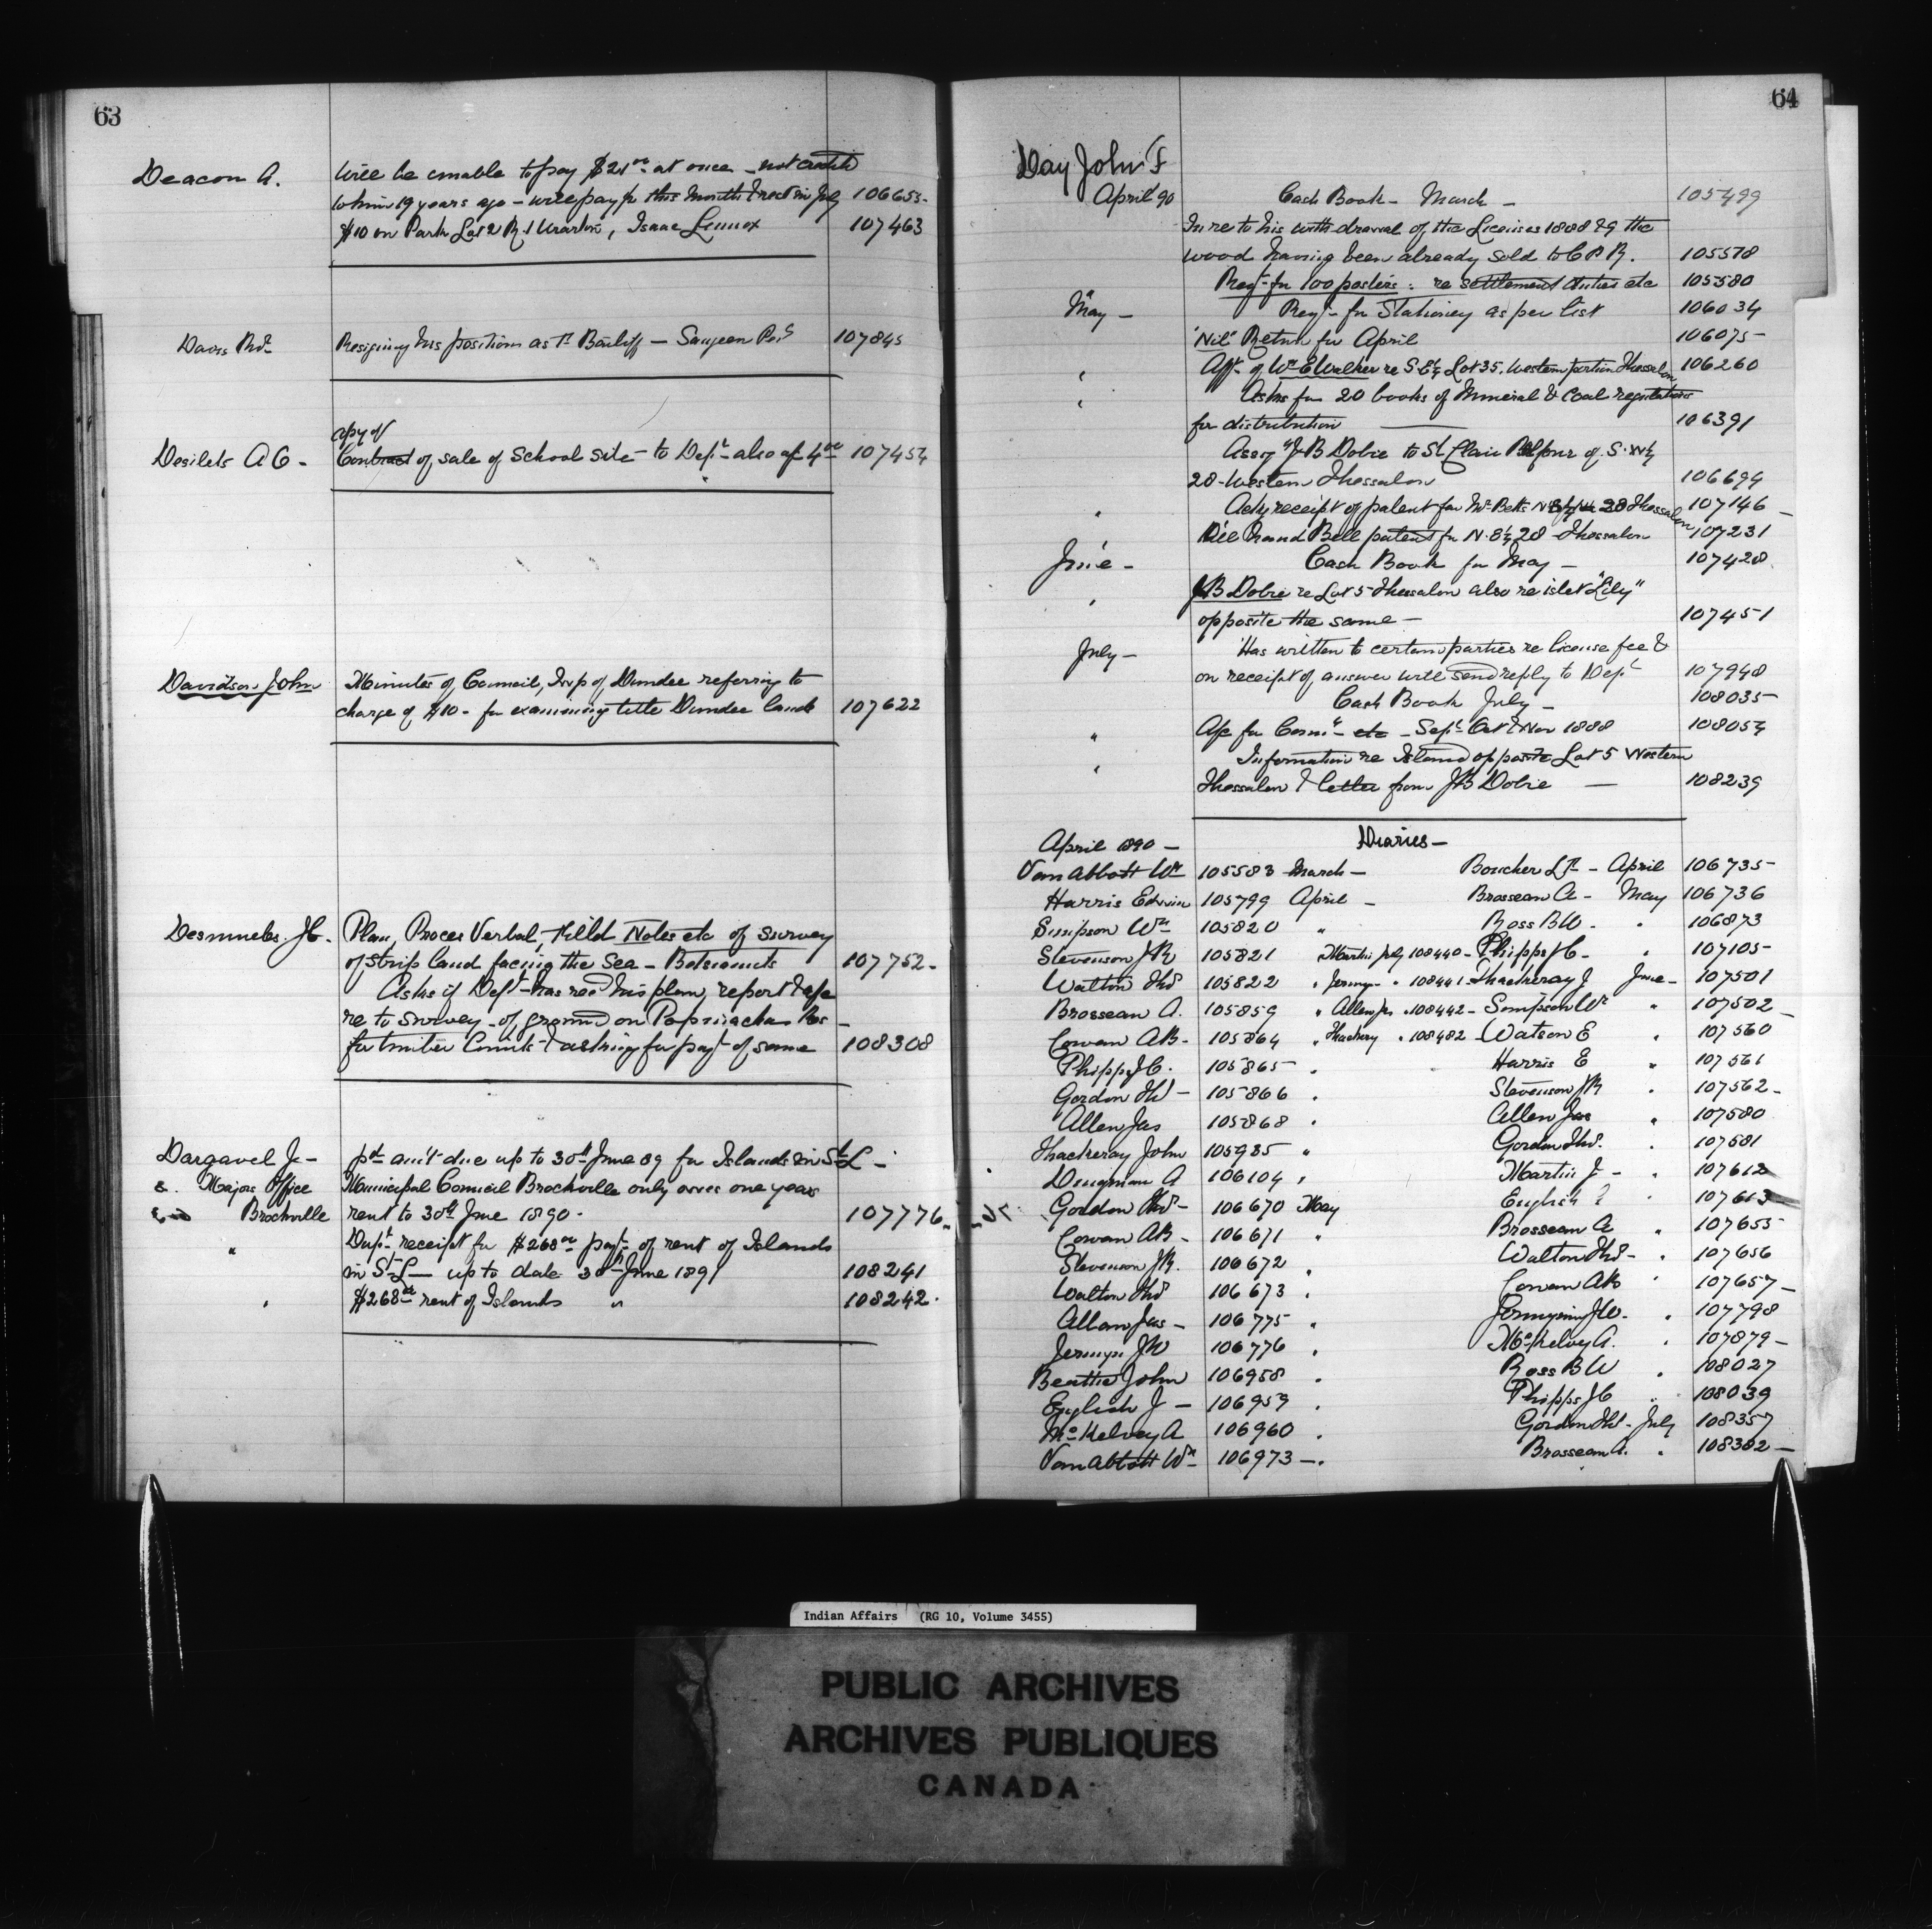 63
Deacon A. Will be unable to pay $21 00 at once - not
to him 19 years ago - will pay pt this month & rest in July 106653-
$10 on Park Lot 2 R. 1 Wiarton, Isaac Lennox 107463
Davis Resigning his position as Bailiff - Saugeen Res 107845
Copy of
Desilets A C - Contract of sale of School Site - to Dept - also 107454
Davidson John Minutes of Council, Twp of Dundee referring to
charge of $10 - for examining title Dundee lands 107622
Desmeules J.B. Plan, Proces Verbal, Field Notes etc of survey
of strip land facing the Sea - Betsiamits 107752-
Asks if Dept has recd his plan, report &
re to survey of ground on Res -
for timber limits & asking for payt of same 108308
Dargavel J - pd amt due up to 30th June 89 for Islands in St L -
Mayors Office Municipal Council Brockville only owes one years
Brockville rent to 30th June 1890 - 107776
" Dupt receipt for $268 payt of rent of Islands
in St L - up to date 30th June 1891 108241
" $268 rent of Islands " 108242
64
Day John F
April 90 Cash Book - March - 105499
In re to his withdrawal of the Licenses 1888 89 the
wood having been already sold to C P R. 105578
" Reqt for 100 posters: re settlement duties etc 105580
May - Reqt for Stationery as per list 106034
'Nil' Return for April 106075-
" Afft of Wm E Walker re S.E¼ Lot 35. Western portion Thessalon 106260
" Asks for 20 books of Mineral & Coal regulations
for distribution 106391
Assgt J B Dobie to St Clair Balfour of S.W¼
28 - Western Thessalon 106694
" Ackg receipt of patent for Mr Betts 28 Thessalon 107146
Will hand Bell patent for N. E¼ 28 Thessalon 107231
June - Cash Book for May - 107428
" J B Dobie re Lot 5 Thessalon also re islet "Lily"
opposite the same - 107451
July - Has written to certain parties re license fee &
on receipt of answer will send reply to Dept 107948
Cash Book July - 108035
" A/c for Comn etc - Sept Oct & Nov 1888 108054
" Information re Island opposite Lot 5 Western
Thessalon & letter from J B Dobie - 108239
Diaries -
April 1890 -
Van Abbott Wm 105583 March - Boucher - April 106735
Harris Edwin 105799 April - Brosseau A - May 106736
Simpson Wm 105820 " Ross B W - " 106873
Stevenson J R 105821 Martin July 108440 - Phipps J C - " 107105
Walton Thos 105822 " Jermyn - " 108441 Thackeray J June - 107501
Brosseau A. 105859 " Allen Jas " 108442 - Simpson Wm " 107502
Cowan A B - 105864 " Thackery " 108482 - Watson E " 107560
Phipps J C. 105865 " Harris E " 107561
Gordon Thos - 105866 " Stevenson J R " 107562
Allen Jas 105868 " Allen Jas " 107580
Thackeray John 105935 " Gordon Thos. " 107581
Dingman A 106104 " Martin J - " 107612
Gordon Thos - 106670 May English J " 107613
Cowan A B - 106671 " Brosseau A " 107655
Stevenson J R. 106672 " Walton Thos - " 107656
Walton Thos 106673 " Cowan A B " 107657
Allan Jas - 106775 " Jermyn J W. " 107798
Jermyn J W 106776 " McKelvey A. " 107879
Beattie John 106958 " Ross B W " 108027
English J - 106959 " Phipps J C " 108039
McKelvey A 106960 " Gordon Thos - July 108357
Van Abbott Wm 106973 - " Brosseau A. " 108382
Indian Affairs (RG 10, Volume 3455)
PUBLIC ARCHIVES
ARCHIVES PUBLIQUES
CANADA